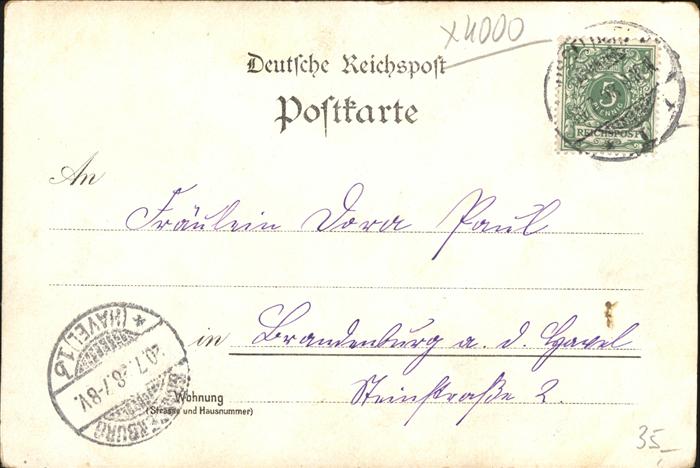 x4000
Deutsche Reichspost
Postkarte
5
PFENNIG
REICHSPOST
An
Fräulein Dora Paul
in Brandenburg a. d. Havel
Steinstraße 2.
Wohnung
(Strasse und Hausnummer)
BRANDENBURG
(HAVEL) 1 b
7-8V.
35,-